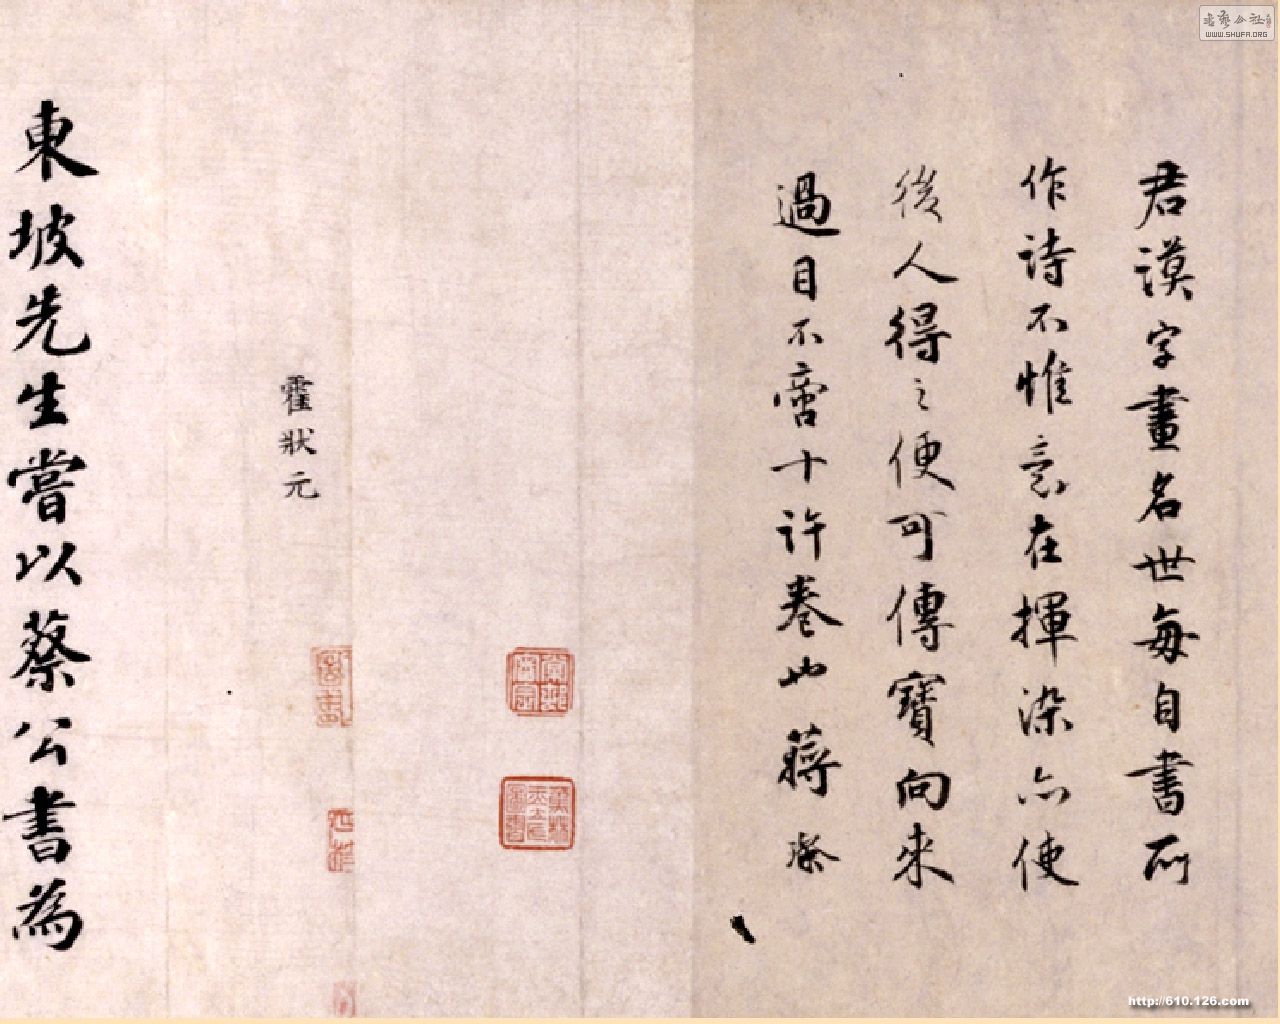 君謨字畫名世每自書所
作詩不惟意在揮染亦使
後人得之便可傳寶向來
過目不啻十許卷也蔣璨
霍狀元
東坡先生嘗以蔡公書為
書藝公社
WWW.SHUFA.ORG
http://610.126.com